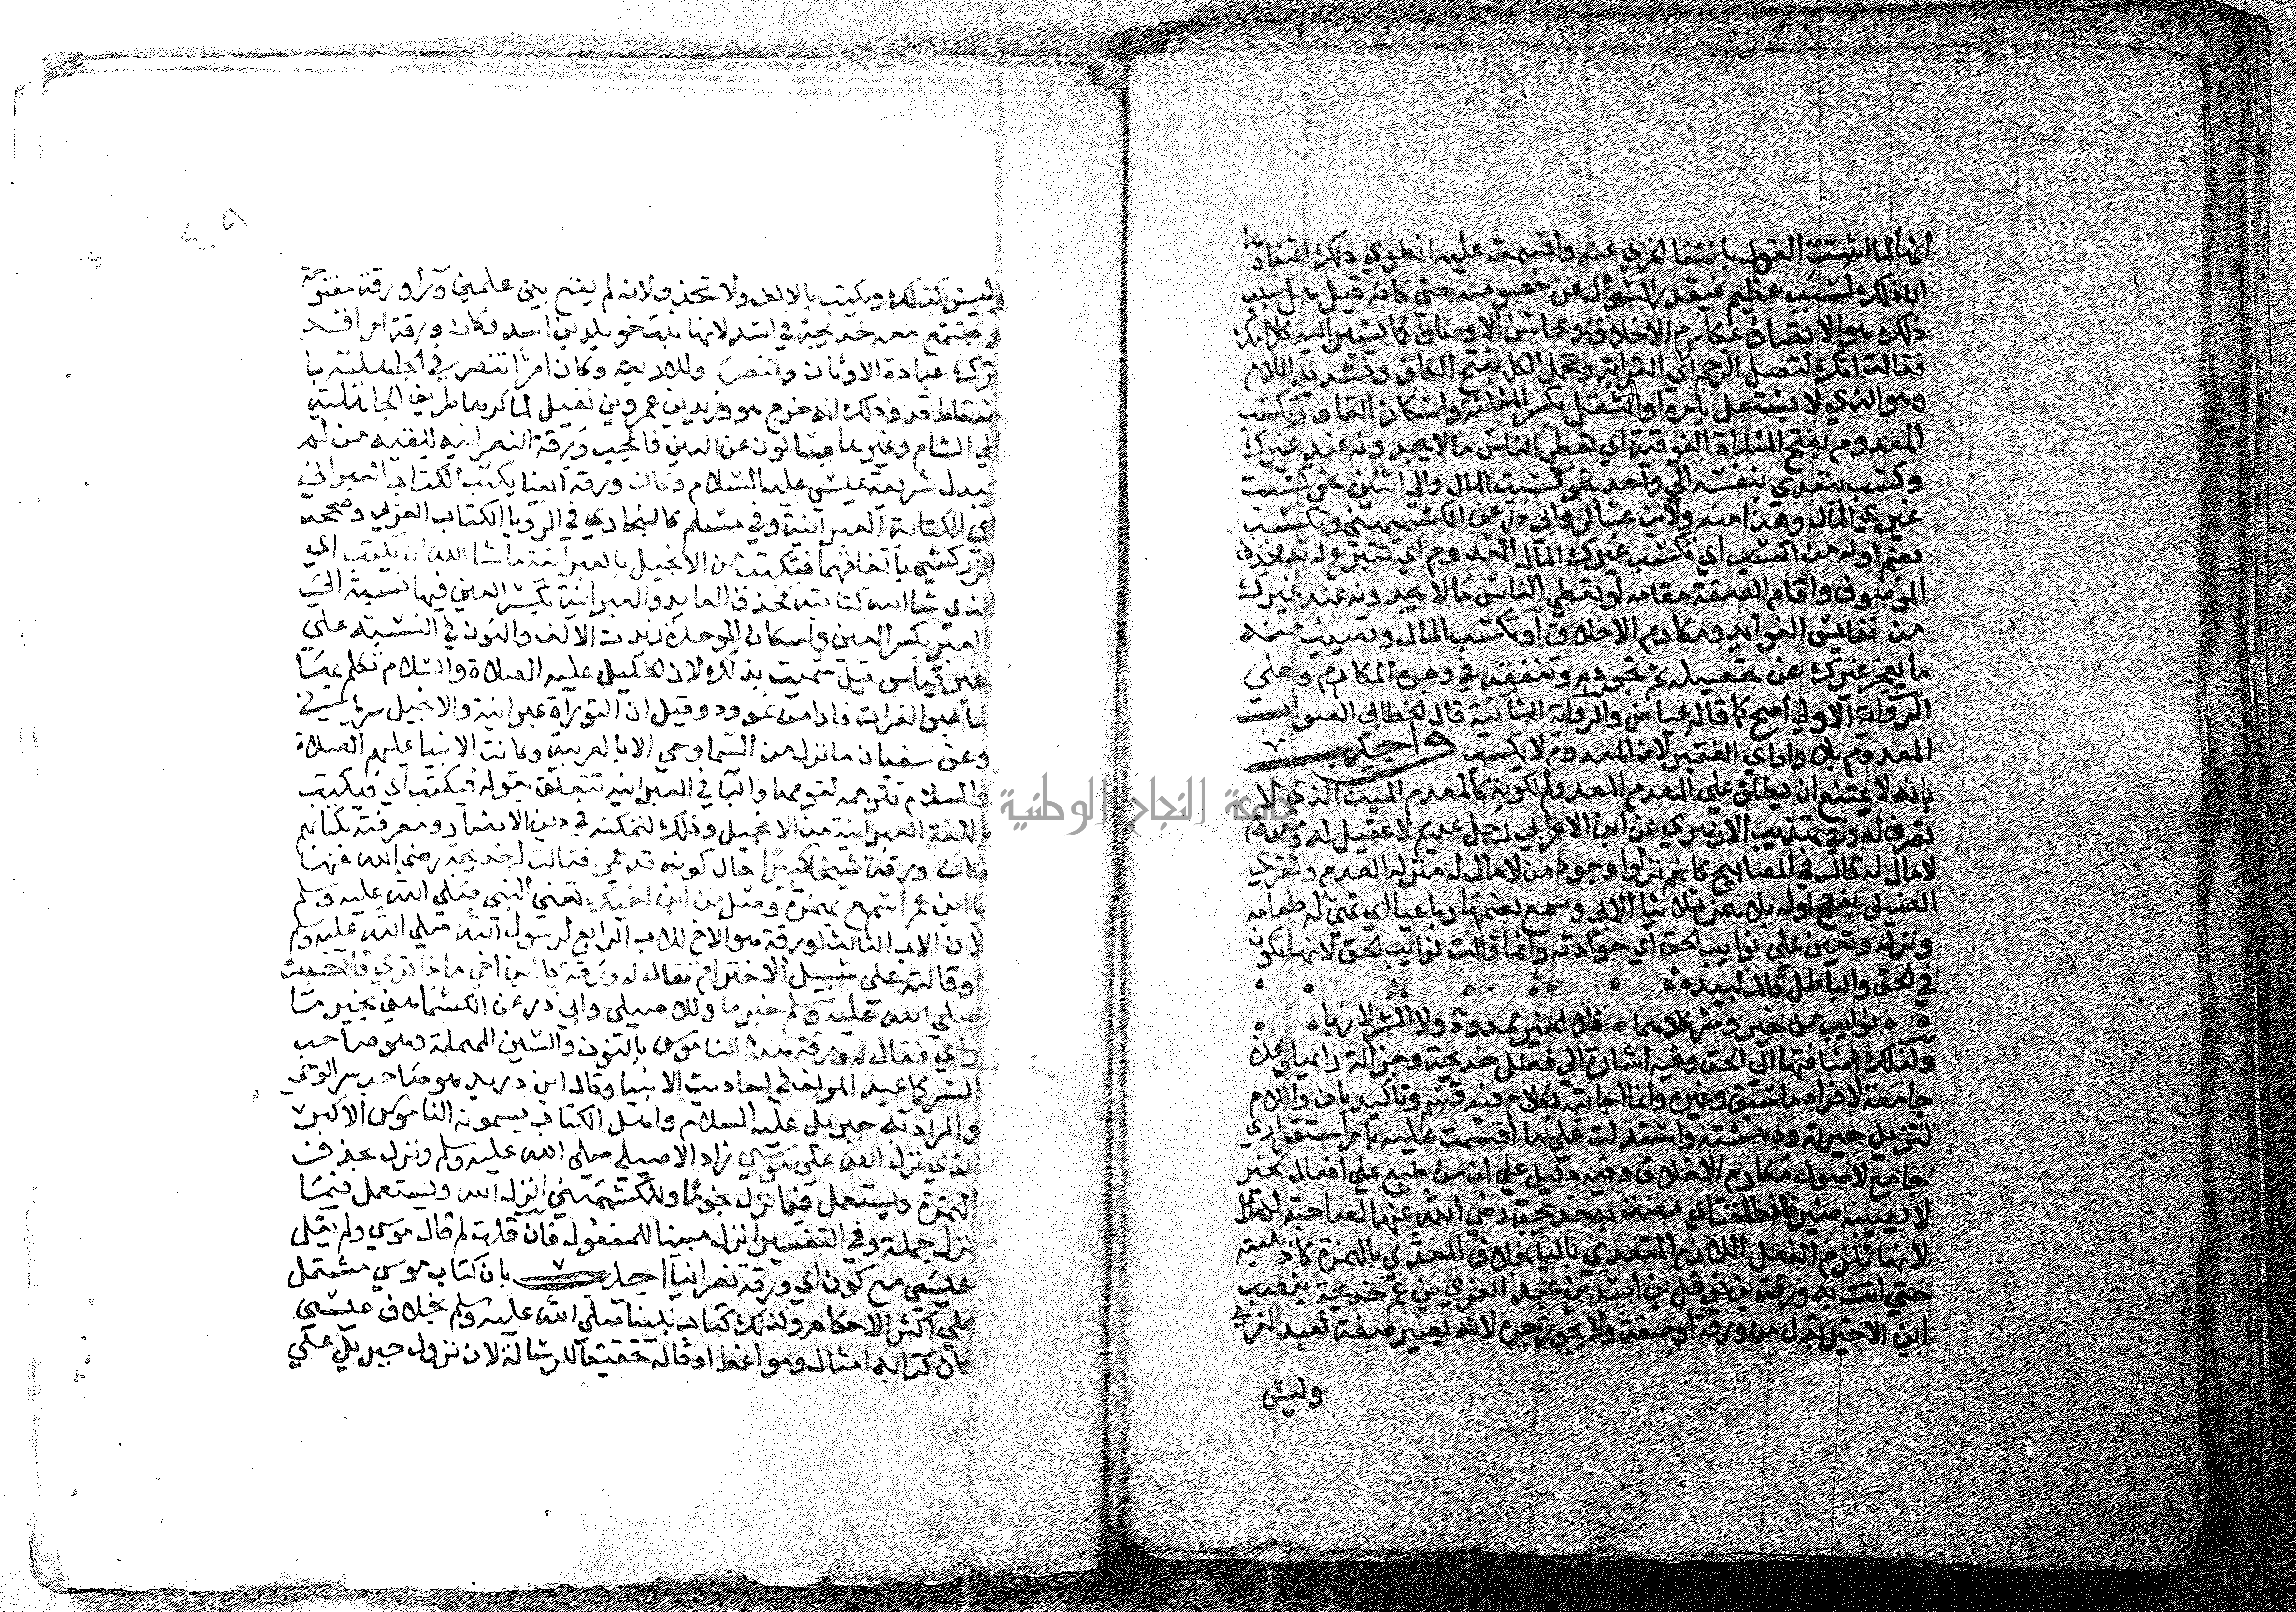 انها لما اثبتت القول بانتفا الخزي عنه واقسمت عليه انطوي ذلك اعتقادها
ان ذلك لسبب عظيم فيقدر السوال عن خصوصه حتي كانه قيل هل سبب
ذلك هو الاتصاف بمكارم الاخلاق ومحاسن الاوصاف كما يشير اليه كلامك
فقالت انك لتصل الرحم اي القرابة وتحمل الكل بفتح الكاف وتشديد اللام
وهو الذي لا يستقل بامره او الثقل بكسر المثلثة واسكان القاف وتكسب
المعدوم بفتح المثناة الفوقية اي تعطي الناس ما لا يجدونه عند غيرك
وكسب يتعدي بنفسه الي واحد نحو كسبت المال والي اثنين نحو كسبت
غيري المال وهذا منه ولابن عساكر وابي ذر عن الكشميهني وتكسب
بضم اوله من اكسب اي تكسب غيرك المال المعدوم اي تتبرع له به فحذف
الموصوف واقام الصفة مقامه او تعطي الناس ما لا يجدونه عند غيرك
من نفايس الفوايد ومكارم الاخلاق او تكسب المال وتصيب منه
ما يعجز غيرك عن تحصيله ثم تجود به وتنفقه في وجوه المكارم وعلي
الرواية الاولي اصح كما قاله عياض والرواية الثانية قال الخطابي الصواب
المعدم بلا واو اي الفقير لان المعدوم لا يكسب واجيب
بانه لا يمتنع ان يطلق علي المعدم المعدوم لكونه كالمعدم الميت الذي لا
تصرف له وفي تهذيب الازهري عن ابن الاعرابي رجل عديم لا عقل له ومعدوم
لا مال له قال في المصابيح كانهم نزلوا وجود من لا مال له منزلة العدم وتقري
الضيف بفتح اوله بلا همز ثلاثيا قال الابي وسمع بضمها رباعيا اي تهي له طعامه
ونزله وتعين علي نوايب الحق اي حوادثه وانما قالت نوايب الحق لانها تكون
في الحق والباطل قال لبيد
نوايب من خير وشر كلاهما فلا الخير ممدود ولا الشر لازب
ولذلك اضافتها الي الحق وفيه اشارة الي فضل خديجة وجزالة رايها وهذه
جامعة لافراد ما سبق وغيره وانما اجابته بكلام فيه قسم وتاكيد بان واللام
لتزيل حيرته ودهشته واستدلت علي ما اقسمت عليه بامر استقراي
جامع لاصول مكارم الاخلاق وفيه دليل علي ان من طبع علي افعال الخير
لا يصيبه ضير فانطلقت اي مضت به خديجة رضي الله عنها مصاحبة له
لانها تلزم الفعل اللازم المتعدي بالبا بخلاف المعدي بالهمزة كاذهبته
حتي اتت به ورقة بن نوفل بن اسد بن عبد العزي بن عم خديجة بنصب
ابن الاخير بدل من ورقة او صفة ولا يجوز جره لانه يصير صفة لعبد العزي
وليس
وليس كذلك ويكتب بالالف ولا تحذف لانه لم يقع بين علمين ورا ورقة مفتوحة
وتجتمع معه خديجة في اسد لانها بنت خويلد بن اسد وكان ورقة امرا قد
ترك عبادة الاوثان وتنصر وللاربعة وكان امرا تنصر في الجاهلية با
سقاط قد وذلك انه خرج هو وزيد بن عمرو بن نفيل لما كرها طريق الجاهلية
الي الشام وغيرها يسالون عن الدين فاعجب ورقة النصرانية للقيه من لم
يبدل شريعة عيسي عليه السلام وكان ورقة ايضا يكتب الكتاب العبراني
اي الكتابة العبرانية وفي مسلم كالبخاري في الرويا الكتاب العربي وصححه
الزركشي باتفاقهما فيكتب من الانجيل بالعبرانية ما شا الله ان يكتب اي
الذي شا الله كتابته فحذف العايد والعبرانية بكسر العين فيها نسبة الي
العبر بكسر العين واسكان الموحدة زيدت الالف والنون في النسبة علي
غير قياس قيل سميت بذلك لان الخليل عليه الصلاة والسلام تكلم بها
لما عبر الفرات فارا من نمرود وقيل ان التوراة عبرانية والانجيل سرياني
وعن سفيان ما نزل من السما وحي الا بالعربية وكانت الانبيا عليهم الصلاة
والسلام تترجمه لقومها والبا في العبرانية تتعلق بقوله فيكتب اي فيكتب
باللغة العبرانية من الانجيل وذلك لتمكنه في دين النصاري ومعرفته بكتابهم
وكان ورقة شيخا كبيرا حال كونه قد عمي فقالت له خديجة رضي الله عنها
يا ابن عم اسمع بهمزة وصل من ابن اخيك تعني النبي صلي الله عليه وسلم
لان الاب الثالث لورقة هو الاخ للاب الرابع لرسول الله صلي الله عليه وسلم
او قالته علي سبيل الاحترام فقال له ورقة يا ابن اخي ماذا تري فاخبره
صلي الله عليه وسلم خبر ما وللاصيلي وابي ذر عن الكشميهني بخبر ما
راي فقال له ورقة هذا الناموس بالنون والسين المهملة وهو صاحب
السر كما عند المولف في احاديث الانبيا وقال ابن دريد هو صاحب سر الوحي
والمراد به جبريل عليه السلام واهل الكتاب يسمونه الناموس الاكبر
الذي نزل الله علي موسي زاد الاصيلي صلي الله عليه وسلم ونزل بحذف
الهمزة ويستعمل فيما نزل نجوما وللكشميهني انزل الله ويستعمل فيما
نزل جملة وفي التفسير انزل مبينا للمفعول فان قلت لم قال موسي ولم يقل
عيسي مع كون اي ورقة نصرانيا اجيب بان كتاب موسي مشتمل
علي اكثر الاحكام وكذلك كتاب نبينا صلي الله عليه وسلم بخلاف عيسي
فان كتابه امثال ومواعظ او قاله تحقيقا للرسالة لان نزول جبريل علي
جامعة النجاح الوطنية